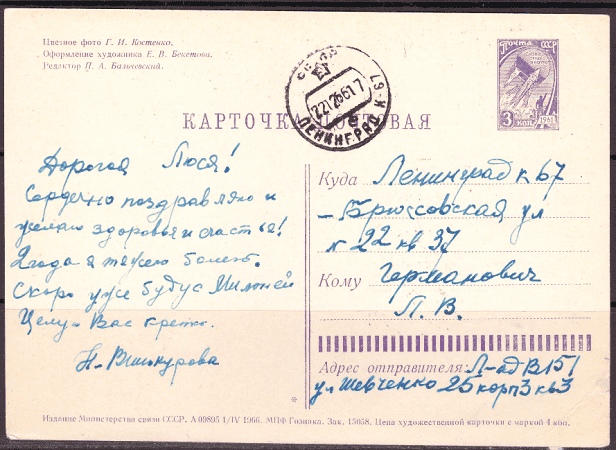 Цветное фото Г. И. Костенко,
Оформление художника Е. В. Бекетова.
Редактор П. А. Бальчевский.
ПОЧТА СССР
3 КОП.
1961
221266 17
ЛЕНИНГРАД К-67
КАРТОЧКА ПОЧТОВАЯ
Дорогая Люся!
Сердечно поздравляю и
желаю здоровья и счастья!
2 года я тяжело болею.
Скоро уже буду
Целую Вас крепко.
Н.
Куда Ленинград к 67
ул
22 кв 37
Кому Германович
Л. В.
Адрес отправителя: Л-ад В151
ул Шевченко 25 корп3 кв3
Издание Министерства связи СССР. А 09895 1/IV 1966. МПФ Гознака. Зак. 15058. Цена художественной карточки с маркой 4 коп.